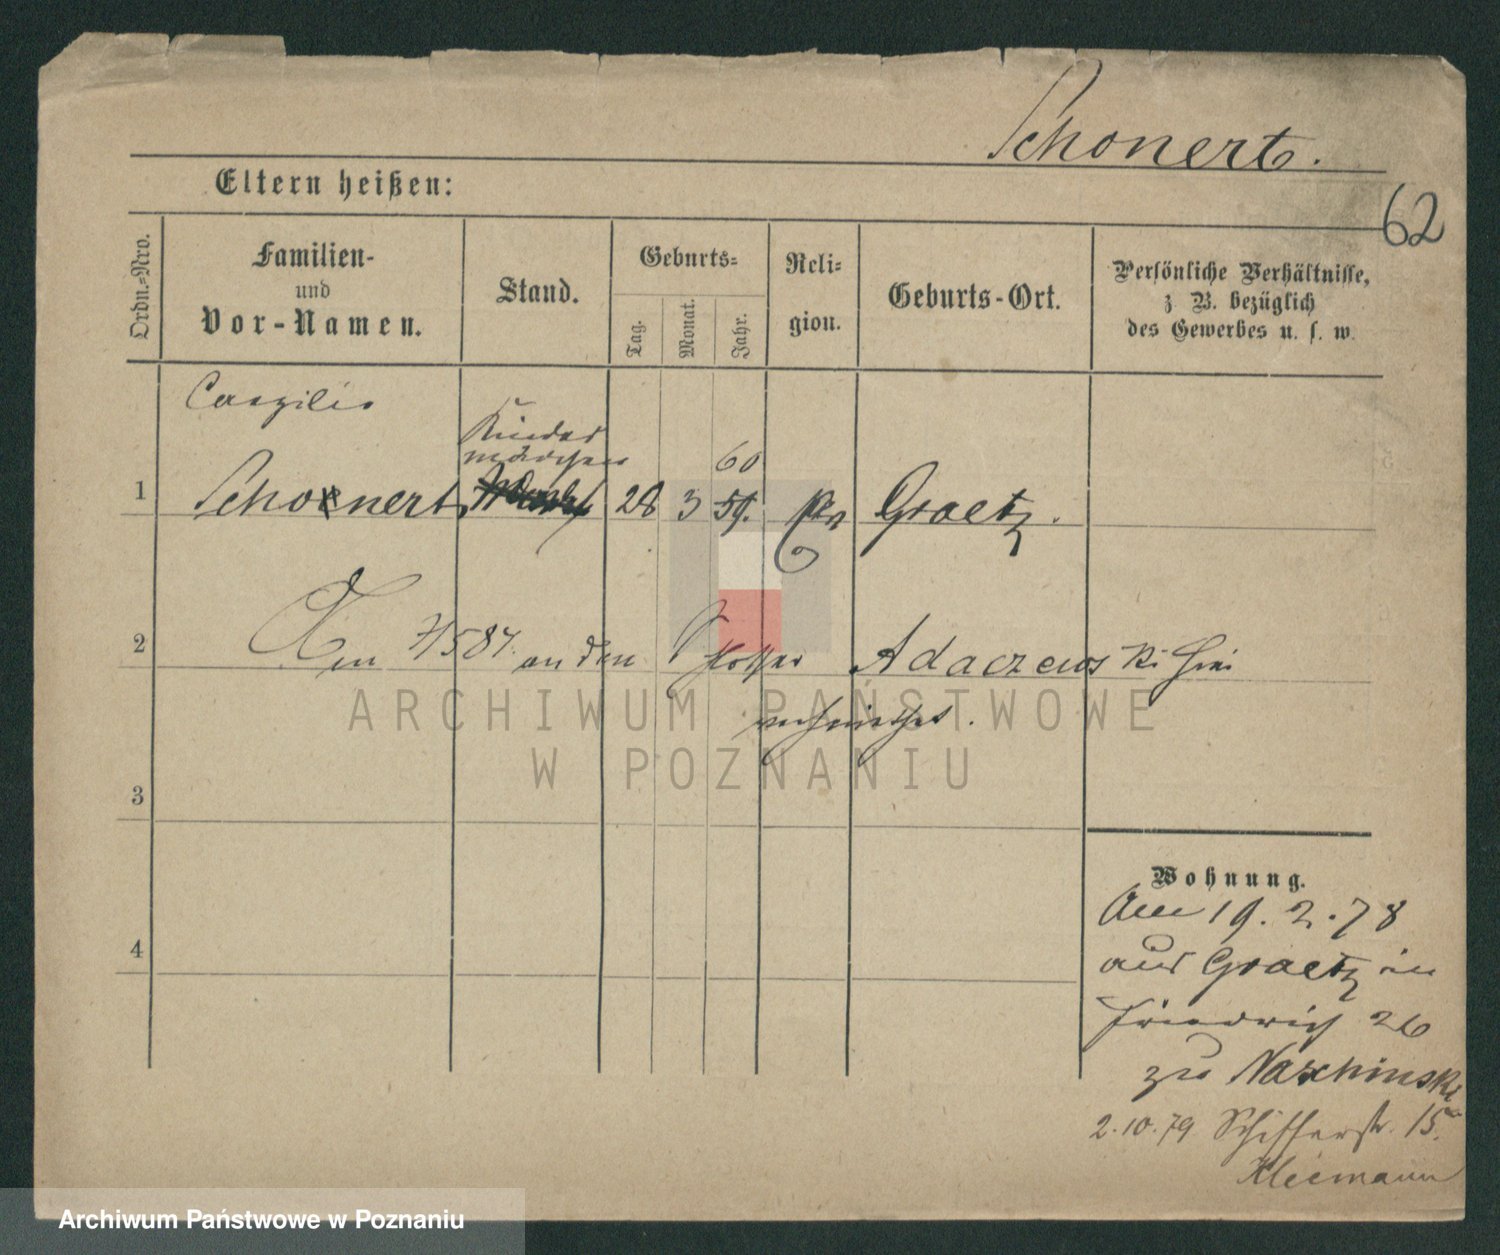 Schonert.
62
Eltern heißen:
Ordn.-Nro.
Familien-
und
Vor-Namen.
Stand.
Geburts-
Tag.
Monat.
Jahr.
Reli-
gion.
Geburts-Ort.
Persönliche Verhältnisse,
z. B. bezüglich
des Gewerbes u. s. w.
Caezilie
Kinder
mädchen
60
1 Schonert 28 3 59. Graetz.
2 Am 4/5 87. an den Adaczewski hier
verheirathet.
3
4
Wohnung.
Am 19. 2. 78
aus Graetz in
Friedrich 26
zu Naschinski
2.10.79 Schifferstr. 15.
Kleemann
ARCHIWUM PAŃSTWOWE
W POZNANIU
Archiwum Państwowe w Poznaniu